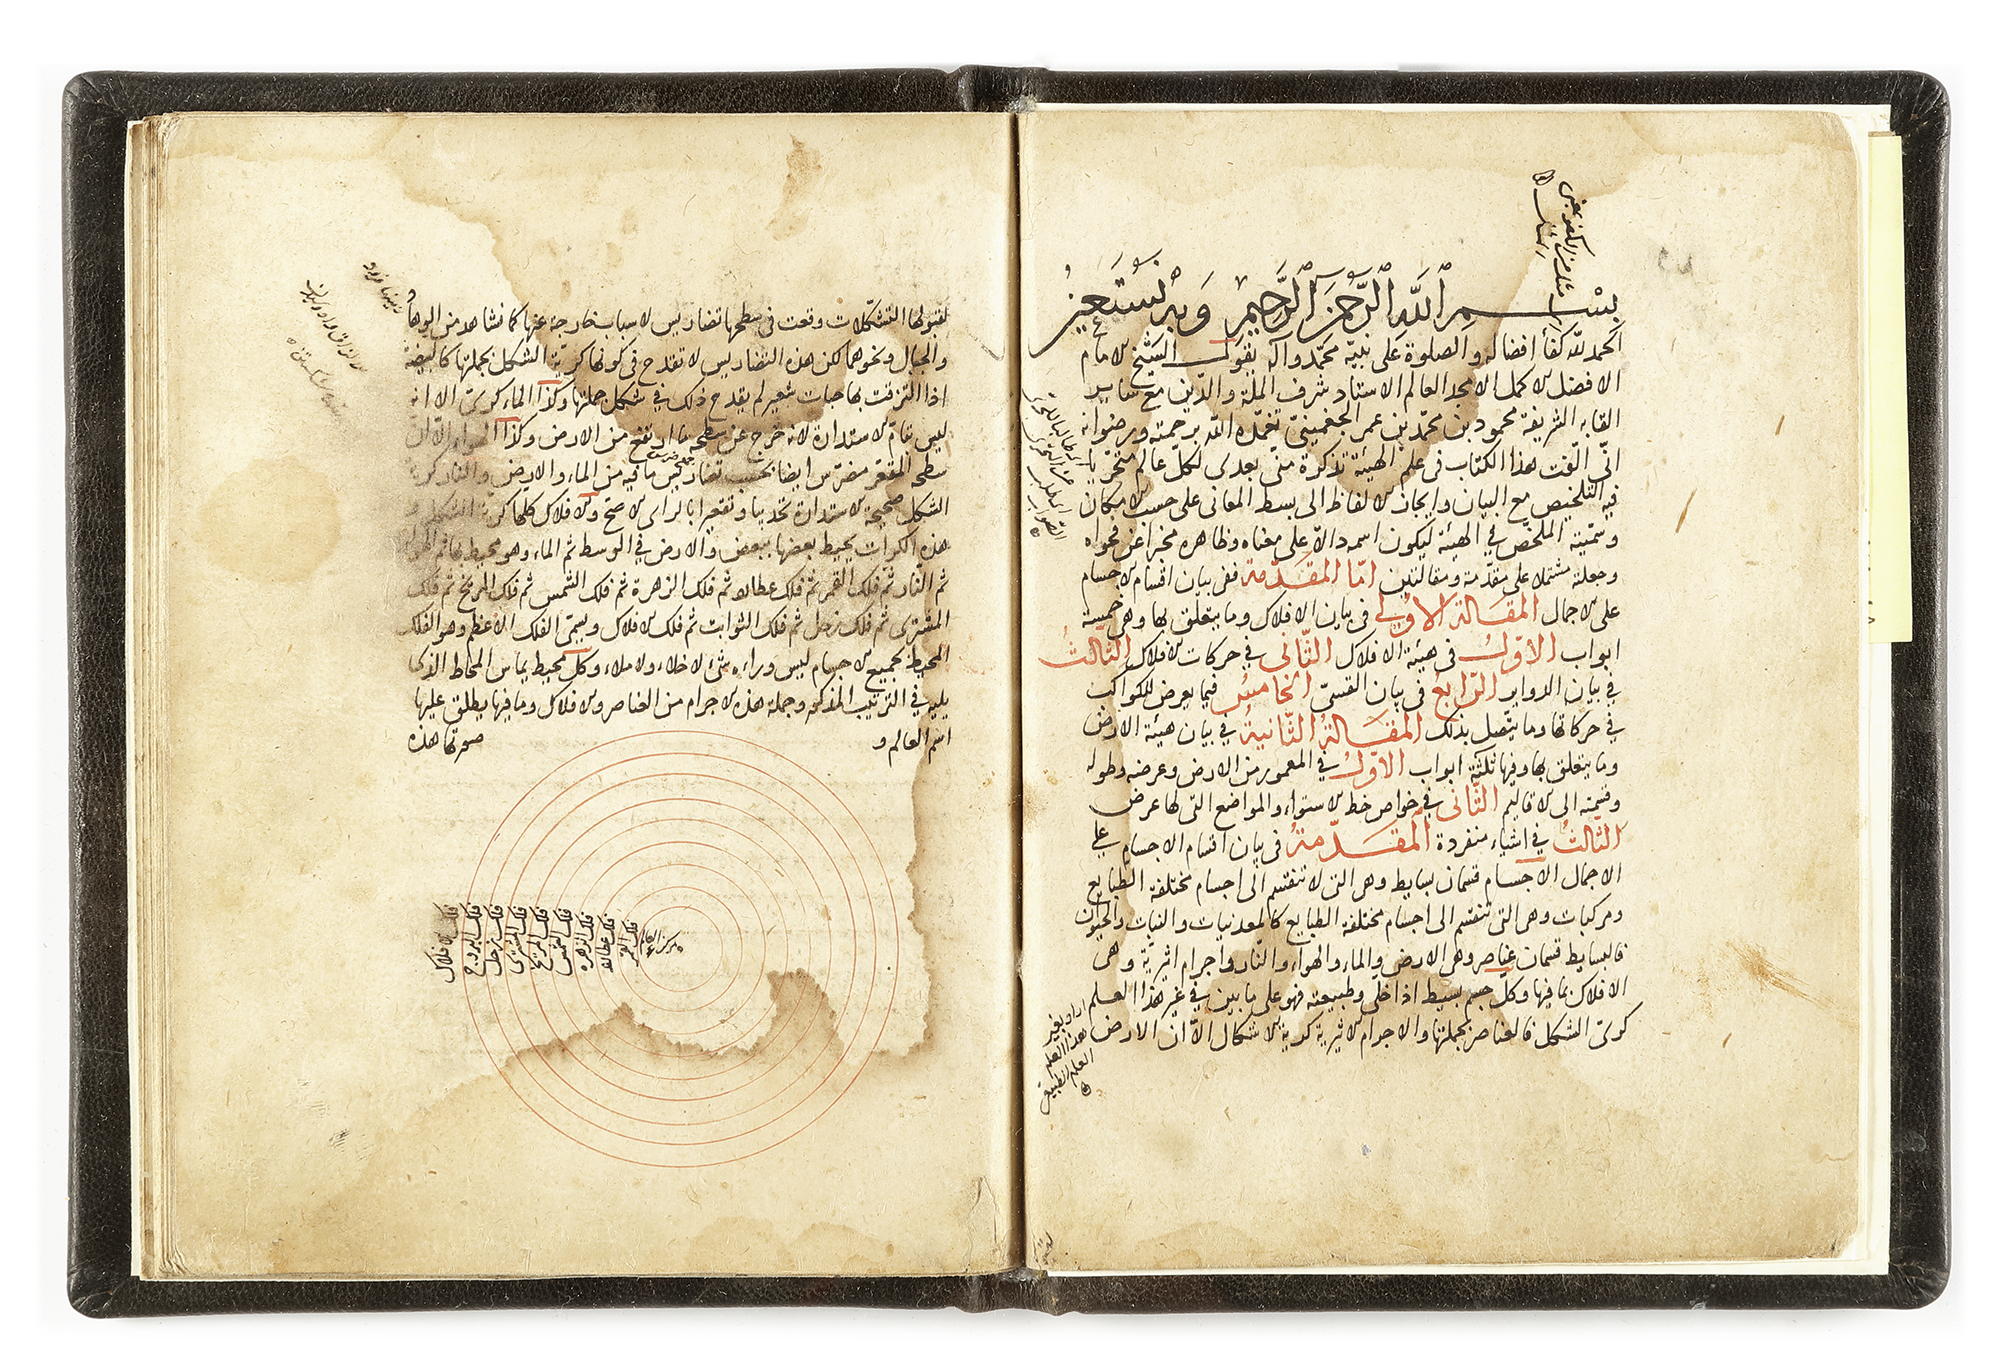 بسم الله الرحمن الرحيم وبه نستعين
الحمد لله كفاء افضاله والصلوة على نبيه محمد وآله يقول الشيخ الامام
الافضل الاكمل الامجد العالم الاستاد شرف الملة والدين مع ساير
القابه الشريفة محمود بن محمد بن عمر الجغميني تغمده الله برحمته ورضوانه
انى الفت هذا الكتاب فى علم الهيئة تذكرة منى بعدى لكل عالم متحريا
فيه التلخيص مع البيان وايجاز الالفاظ الى بسط المعانى على حسب الامكان
وسميته الملخص فى الهيئة ليكون اسمه دالا على معناه وظاهره مخبرا عن فحواه
وجعلته مشتملا على مقدمة ومقالتين اما المقدمة ففى بيان اقسام الاجسام
على الاجمال المقالة الاولى فى بيان الافلاك وما يتعلق بها وهى خمسة
ابواب الاول فى هيئة الافلاك الثانى فى حركات الافلاك الثالث
فى بيان الدواير الرابع فى بيان القسى الخامس فيما يعرض للكواكب
فى حركاتها وما يتصل بذلك المقالة الثانية فى بيان هيئة الارض
وما يتعلق بها وفيها ثلثة ابواب الاول فى المعمور من الارض وعرضه وطوله
وقسمته الى الاقاليم الثانى فى خواص خط الاستواء والمواضع التى لها عرض
الثالث فى اشياء منفردة المقدمة فى بيان اقسام الاجسام على
الاجمال الاجسام قسمان بسايط وهى التى لا تنقسم الى اجسام مختلفة الطبايع
ومركبات وهى التى تنقسم الى اجسام مختلفة الطبايع كالمعدنيات والنبات والحيوان
فالبسايط قسمان عناصر وهى الارض والماء والهواء والنار واجرام اثيرية وهى
الافلاك بما فيها وكل جسم بسيط اذا خلى وطبيعته فهو على ما بين فى غير هذا العلم
كرى الشكل فالعناصر بجملتها والاجرام الاثيرية كرية الاشكال الا ان الارض
اراد بغير
هذا العلم
العلم الطبيعى
لقبولها التشكلات وقعت فى سطحها تضاريس لاسباب خارجة عنها كما نشاهد من الوهاد
والجبال ونحوهما لكن هذه التضاريس لا تقدح فى كونها كرية الشكل بجملتها كالبيضة
اذا التزقت بها حبات شعير لم يقدح ذلك فى شكل جملتها وكذا الماء كرى الا انه
ليس بتام الاستدارة لانه خرج عن سطحه ما ارتفع من الارض وكذا الهواء الا ان
سطحه المقعر مضرس ايضا بحسب تضاريس ما فيه من الماء والارض والنار كرية
الشكل صحيحة الاستدارة تحديبا وتقعيرا بالراى الاصح والافلاك كلها كرية الشكل
هذه الكرات يحيط بعضها ببعض والارض فى الوسط ثم الماء وهو محيط بها ثم الهواء
ثم النار ثم فلك القمر ثم فلك عطارد ثم فلك الزهرة ثم فلك الشمس ثم فلك المريخ ثم فلك
المشترى ثم فلك زحل ثم فلك الثوابت ثم فلك الافلاك ويسمى الفلك الاعظم وهو الفلك
المحيط بجميع الاجسام ليس وراءه شئ لا خلاء ولا ملاء وكل محيط يماس المحاط الذى
يليه فى الترتيب المذكور وجملة هذه الاجرام من العناصر والافلاك وما فيها يطلق عليها
اسم العالم و صورتها هذه
مركز العالم
فلك القمر
فلك عطارد
فلك الزهره
فلك الشمس
فلك المريخ
فلك المشترى
فلك زحل
فلك البروج
فلك الافلاك